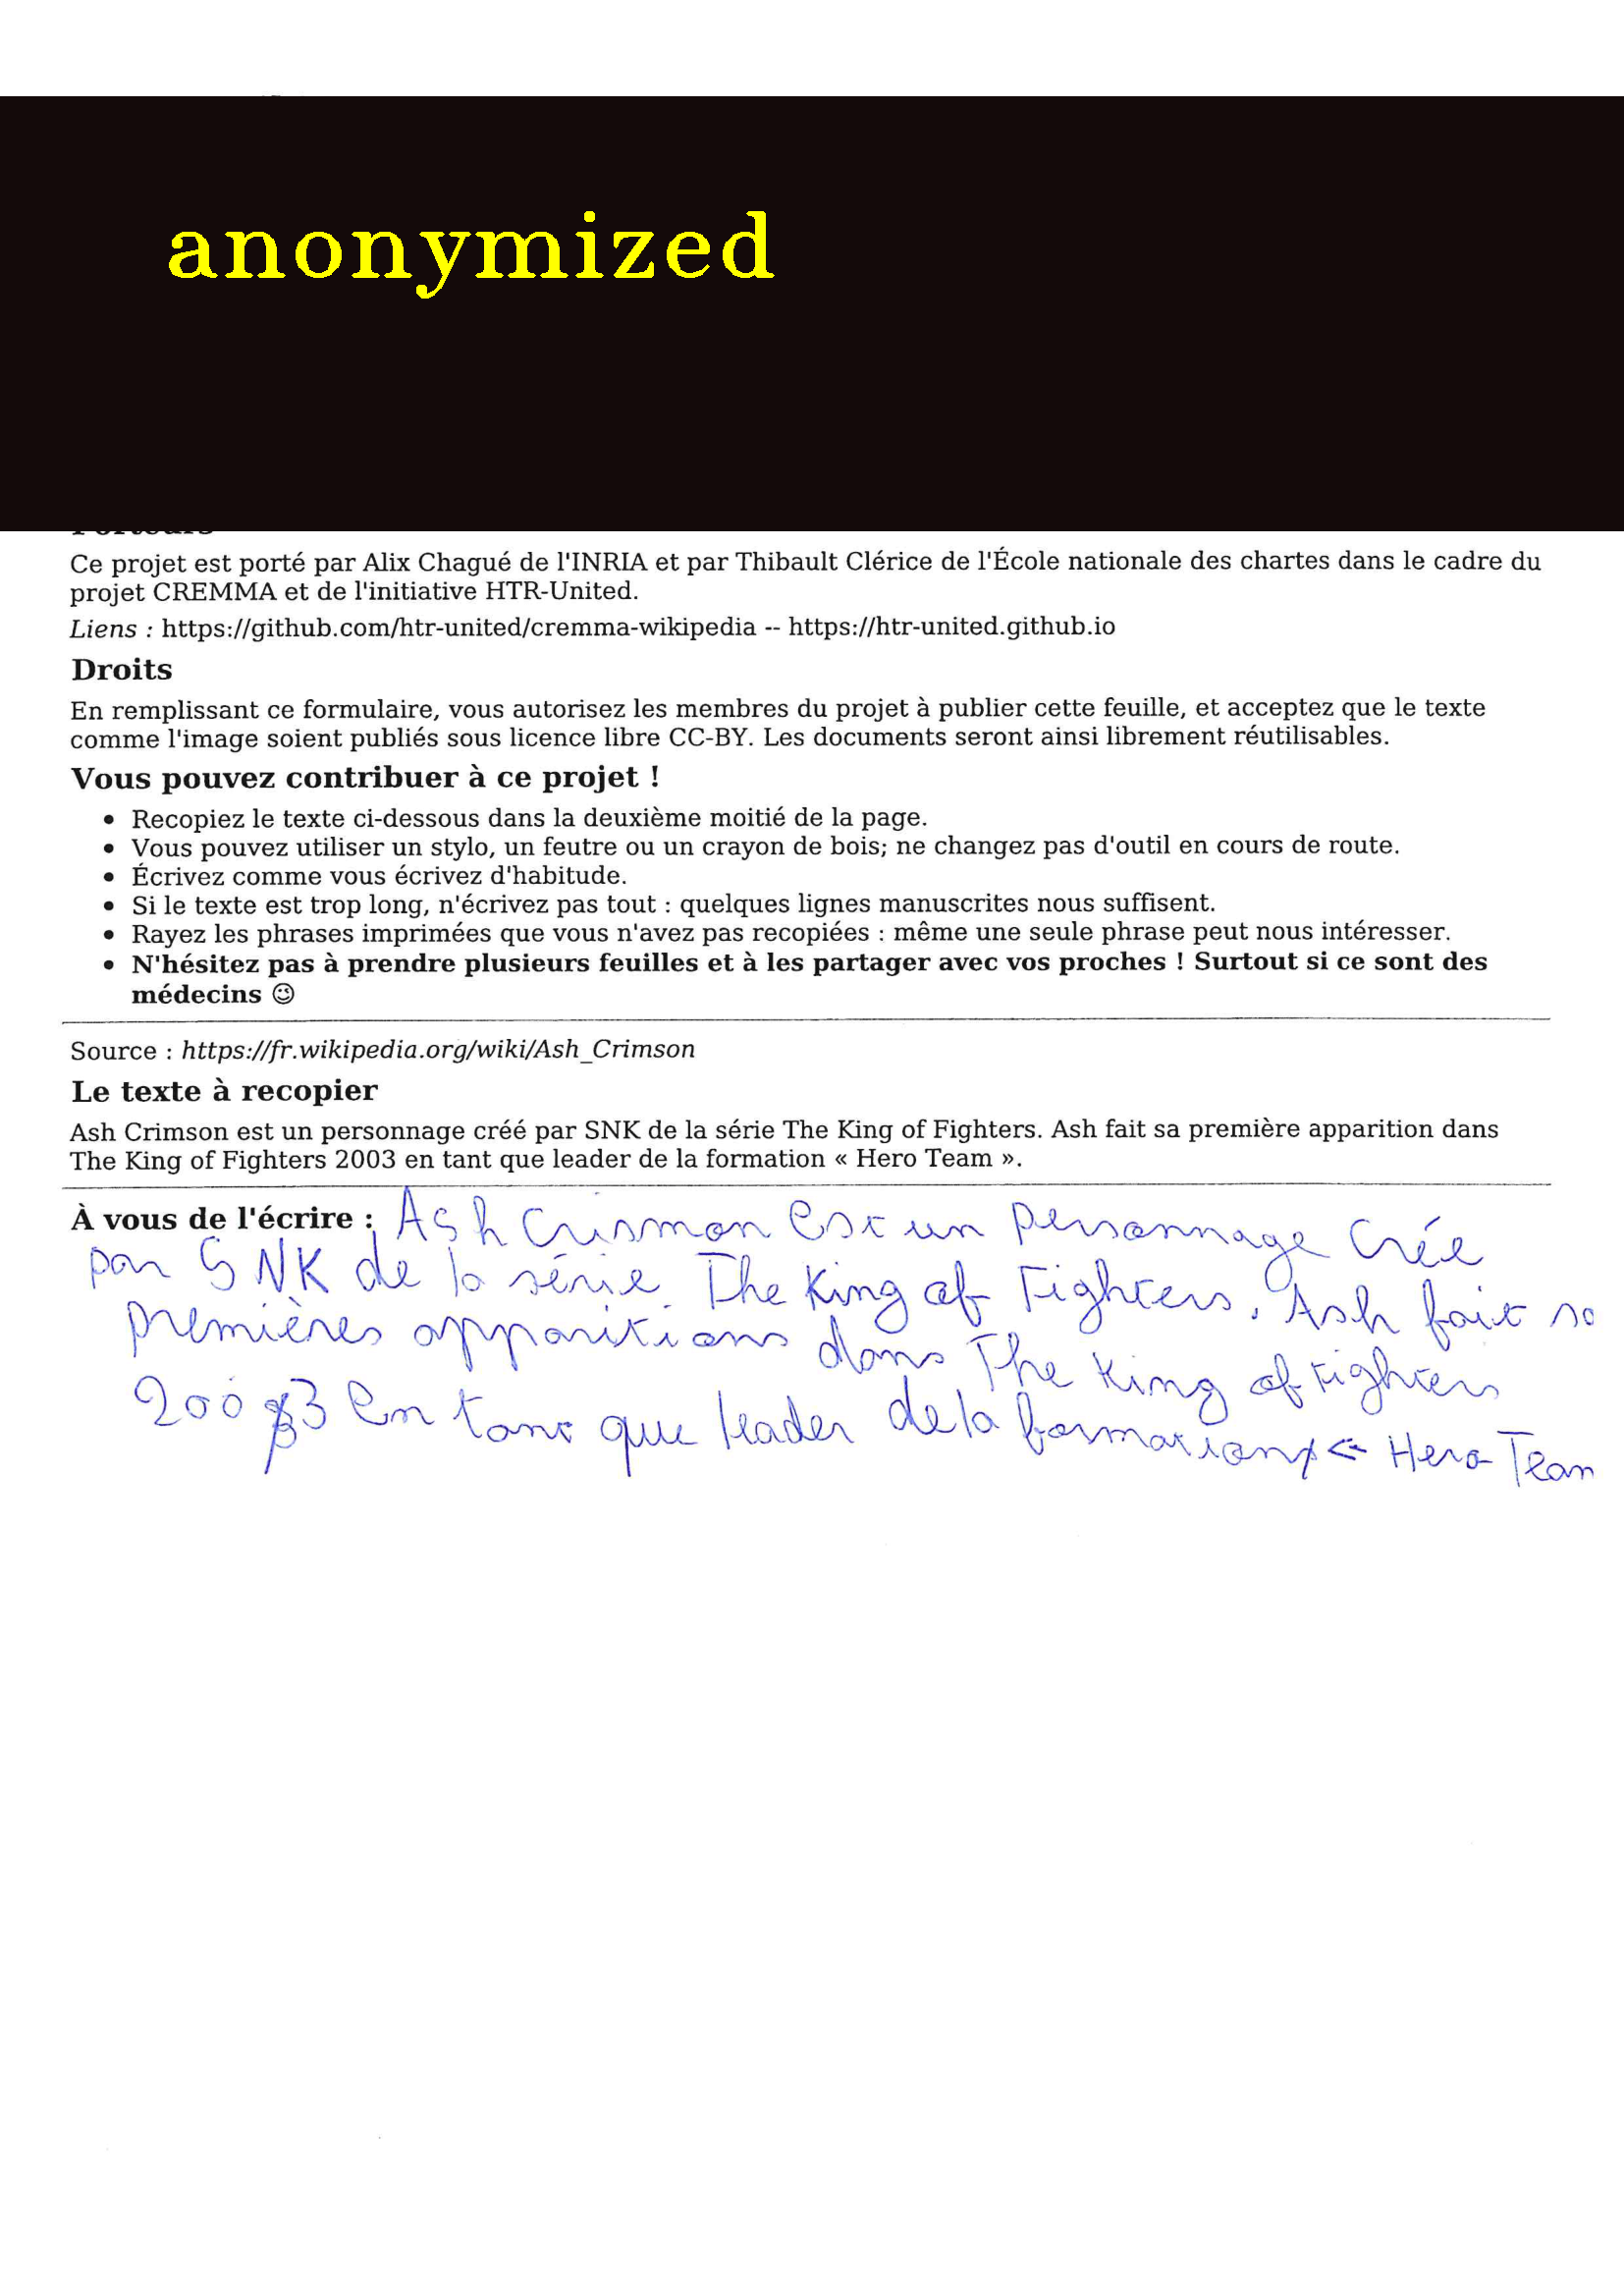 anonymized
Porteurs
Ce projet est porté par Alix Chagué de l'INRIA et par Thibault Clérice de l'École nationale des chartes dans le cadre du
projet CREMMA et de l'initiative HTR-United.
Liens : https://github.com/htr-united/cremma-wikipedia -- https://htr-united.github.io
Droits
En remplissant ce formulaire, vous autorisez les membres du projet à publier cette feuille, et acceptez que le texte
comme l'image soient publiés sous licence libre CC-BY. Les documents seront ainsi librement réutilisables.
Vous pouvez contribuer à ce projet !
• Recopiez le texte ci-dessous dans la deuxième moitié de la page.
• Vous pouvez utiliser un stylo, un feutre ou un crayon de bois; ne changez pas d'outil en cours de route.
• Écrivez comme vous écrivez d'habitude.
• Si le texte est trop long, n'écrivez pas tout : quelques lignes manuscrites nous suffisent.
• Rayez les phrases imprimées que vous n'avez pas recopiées : même une seule phrase peut nous intéresser.
• N'hésitez pas à prendre plusieurs feuilles et à les partager avec vos proches ! Surtout si ce sont des
médecins 😉
Source : https://fr.wikipedia.org/wiki/Ash_Crimson
Le texte à recopier
Ash Crimson est un personnage créé par SNK de la série The King of Fighters. Ash fait sa première apparition dans
The King of Fighters 2003 en tant que leader de la formation « Hero Team ».
À vous de l'écrire : Ash Crismon est un personnage créé
par SNK de la série The King of Fighters. Ash fait sa
premières apparitions dans The King of Fighters
2003 en tant que leader de la formation « Hero Team